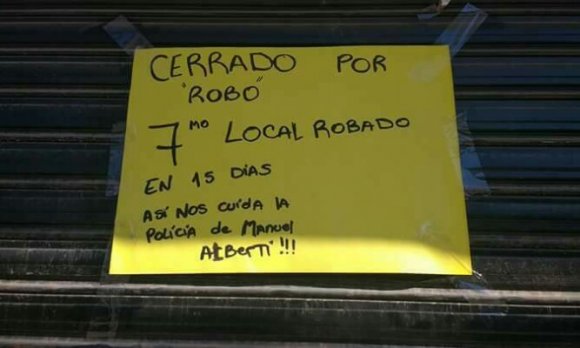 CERRADO POR
"ROBO"
7mo LOCAL ROBADO
EN 15 DÍAS
ASÍ NOS CUIDA LA
POLICÍA de MANUEL
ALBERTI !!!